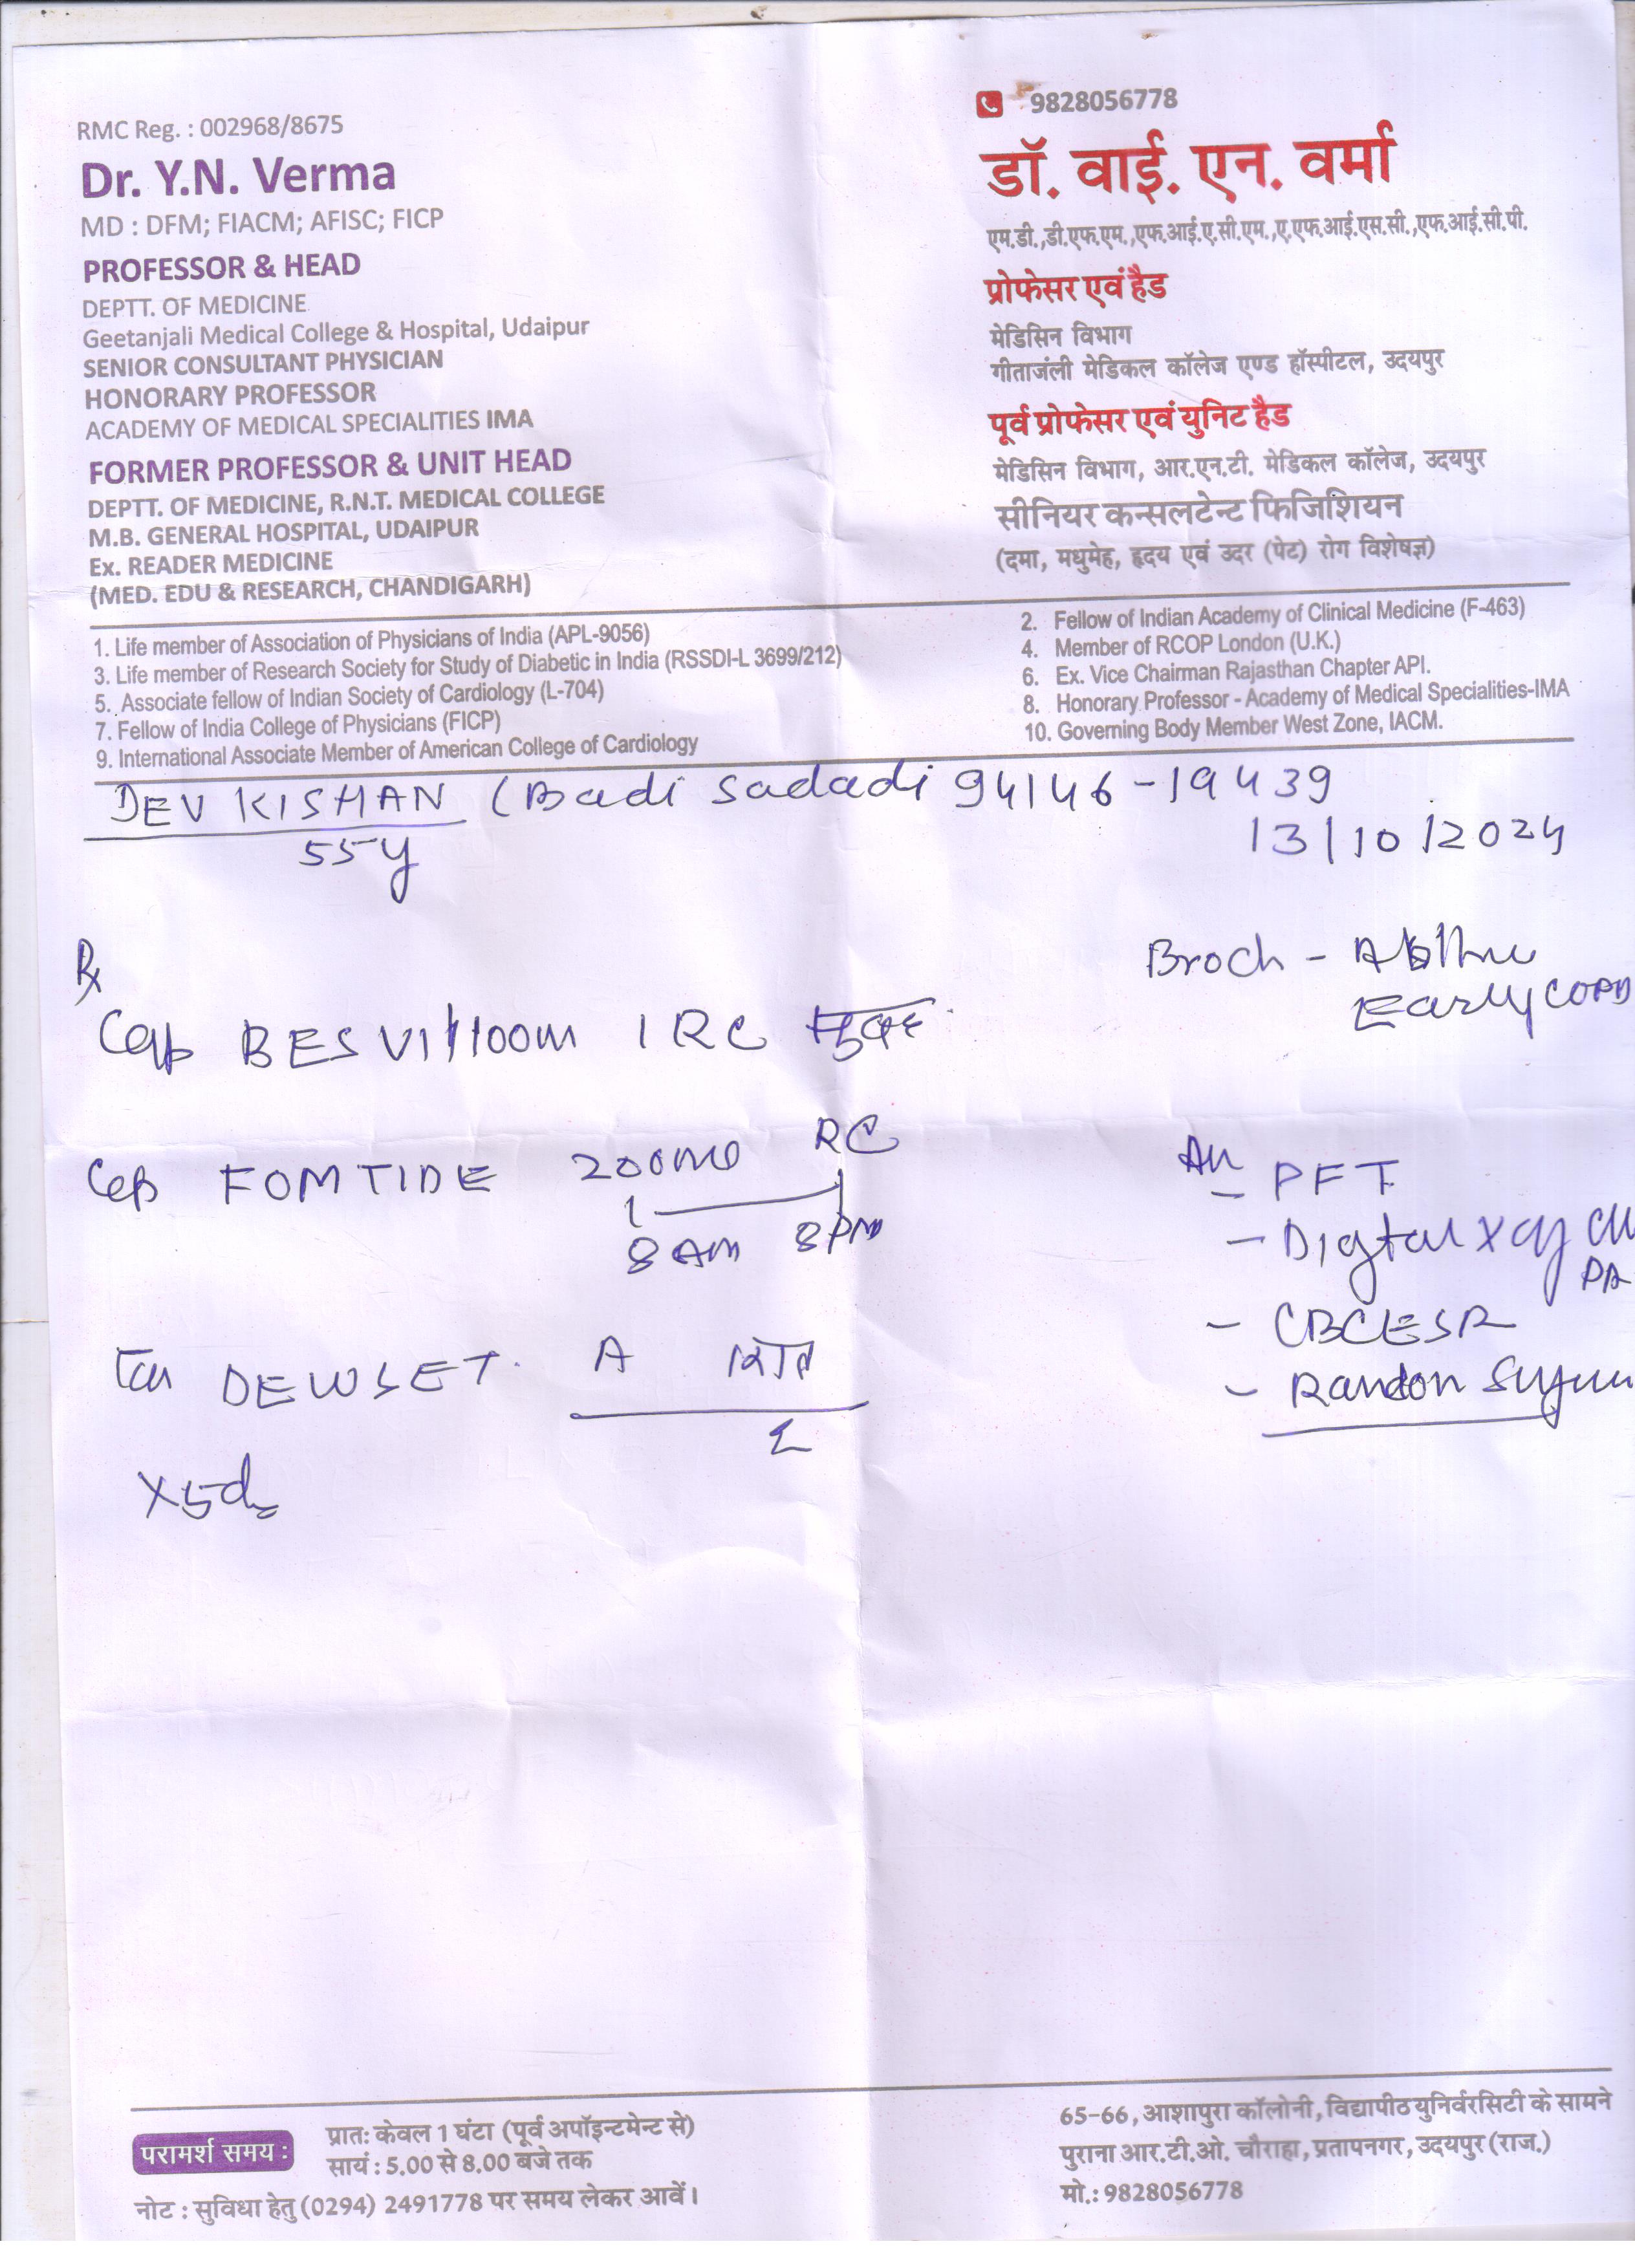 RMC Reg. : 002968/8675
Dr. Y.N. Verma
MD : DFM; FIACM; AFISC; FICP
PROFESSOR & HEAD
DEPTT. OF MEDICINE
Geetanjali Medical College & Hospital, Udaipur
SENIOR CONSULTANT PHYSICIAN
HONORARY PROFESSOR
ACADEMY OF MEDICAL SPECIALITIES IMA
FORMER PROFESSOR & UNIT HEAD
DEPTT. OF MEDICINE, R.N.T. MEDICAL COLLEGE
M.B. GENERAL HOSPITAL, UDAIPUR
Ex. READER MEDICINE
(MED. EDU & RESEARCH, CHANDIGARH)
9828056778
डॉ. वाई. एन. वर्मा
एम.डी.,डी.एफ.एम.,एफ.आई.ए.सी.एम.,ए.एफ.आई.एस.सी.,एफ.आई.सी.पी.
प्रोफेसर एवं हैड
मेडिसिन विभाग
गीताजंली मेडिकल कॉलेज एण्ड हॉस्पीटल, उदयपुर
पूर्व प्रोफेसर एवं युनिट हैड
मेडिसिन विभाग, आर.एन.टी. मेडिकल कॉलेज, उदयपुर
सीनियर कन्सलटेन्ट फिजिशियन
(दमा, मधुमेह, हृदय एवं उदर (पेट) रोग विशेषज्ञ)
1. Life member of Association of Physicians of India (APL-9056)
2. Fellow of Indian Academy of Clinical Medicine (F-463)
3. Life member of Research Society for Study of Diabetic in India (RSSDI-L 3699/212)
4. Member of RCOP London (U.K.)
5. Associate fellow of Indian Society of Cardiology (L-704)
6. Ex. Vice Chairman Rajasthan Chapter API.
7. Fellow of India College of Physicians (FICP)
8. Honorary Professor - Academy of Medical Specialities-IMA
9. International Associate Member of American College of Cardiology
10. Governing Body Member West Zone, IACM.
DEV KISHAN (Badi Sadadi 94146-19439
55y
13/10/2024
Broch -
Early COPD
℞
Cap BESVI 100m 1 RC
Cap FOMTIDE 200mg RC
8 AM 8 PM
DEWSET. A रात
x5d
- PFT
- Digital Xray
PA
- CBC ESR
- Random
परामर्श समय :
प्रातः केवल 1 घंटा (पूर्व अपॉइन्टमेन्ट से)
सायं : 5.00 से 8.00 बजे तक
नोट : सुविधा हेतु (0294) 2491778 पर समय लेकर आवें।
65-66, आशापुरा कॉलोनी, विद्यापीठ युनिर्वरसिटी के सामने
पुराना आर.टी.ओ. चौराहा, प्रतापनगर, उदयपुर (राज.)
मो.: 9828056778